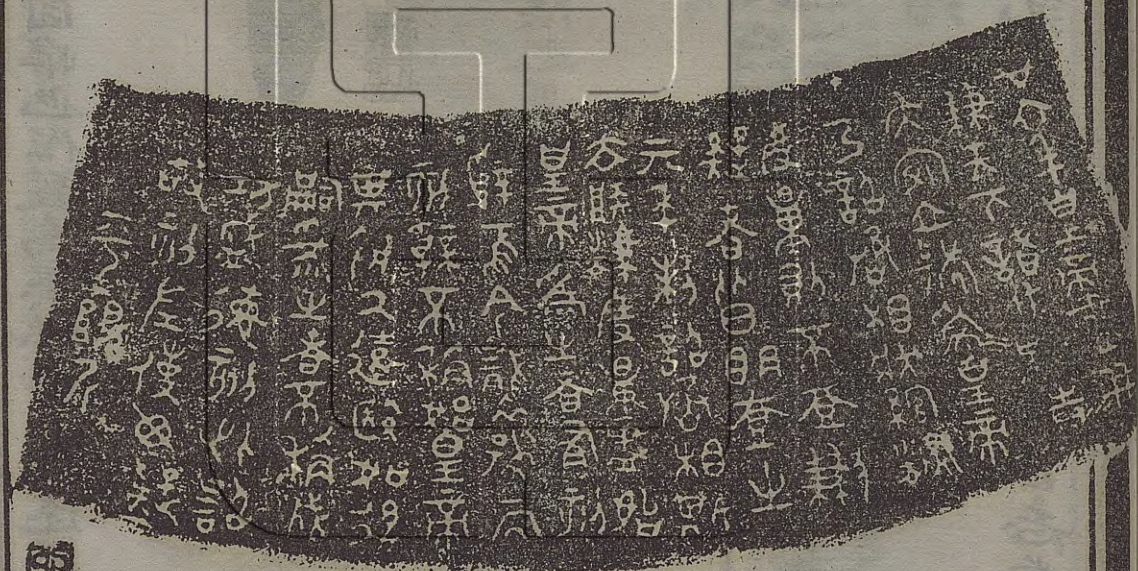 廿六年皇帝盡并
兼天下諸侯黔首
大安立號為皇帝
乃詔丞相狀綰灋
度量則不壹歉
疑者皆明壹之
元年制詔丞相斯
去疾灋度量盡始
皇帝為之皆有刻
辭焉今襲號而
刻辭不稱始皇帝
其於久遠也如後
嗣為之者不稱成
功盛德刻此詔
故刻左使毋疑
平陽斤